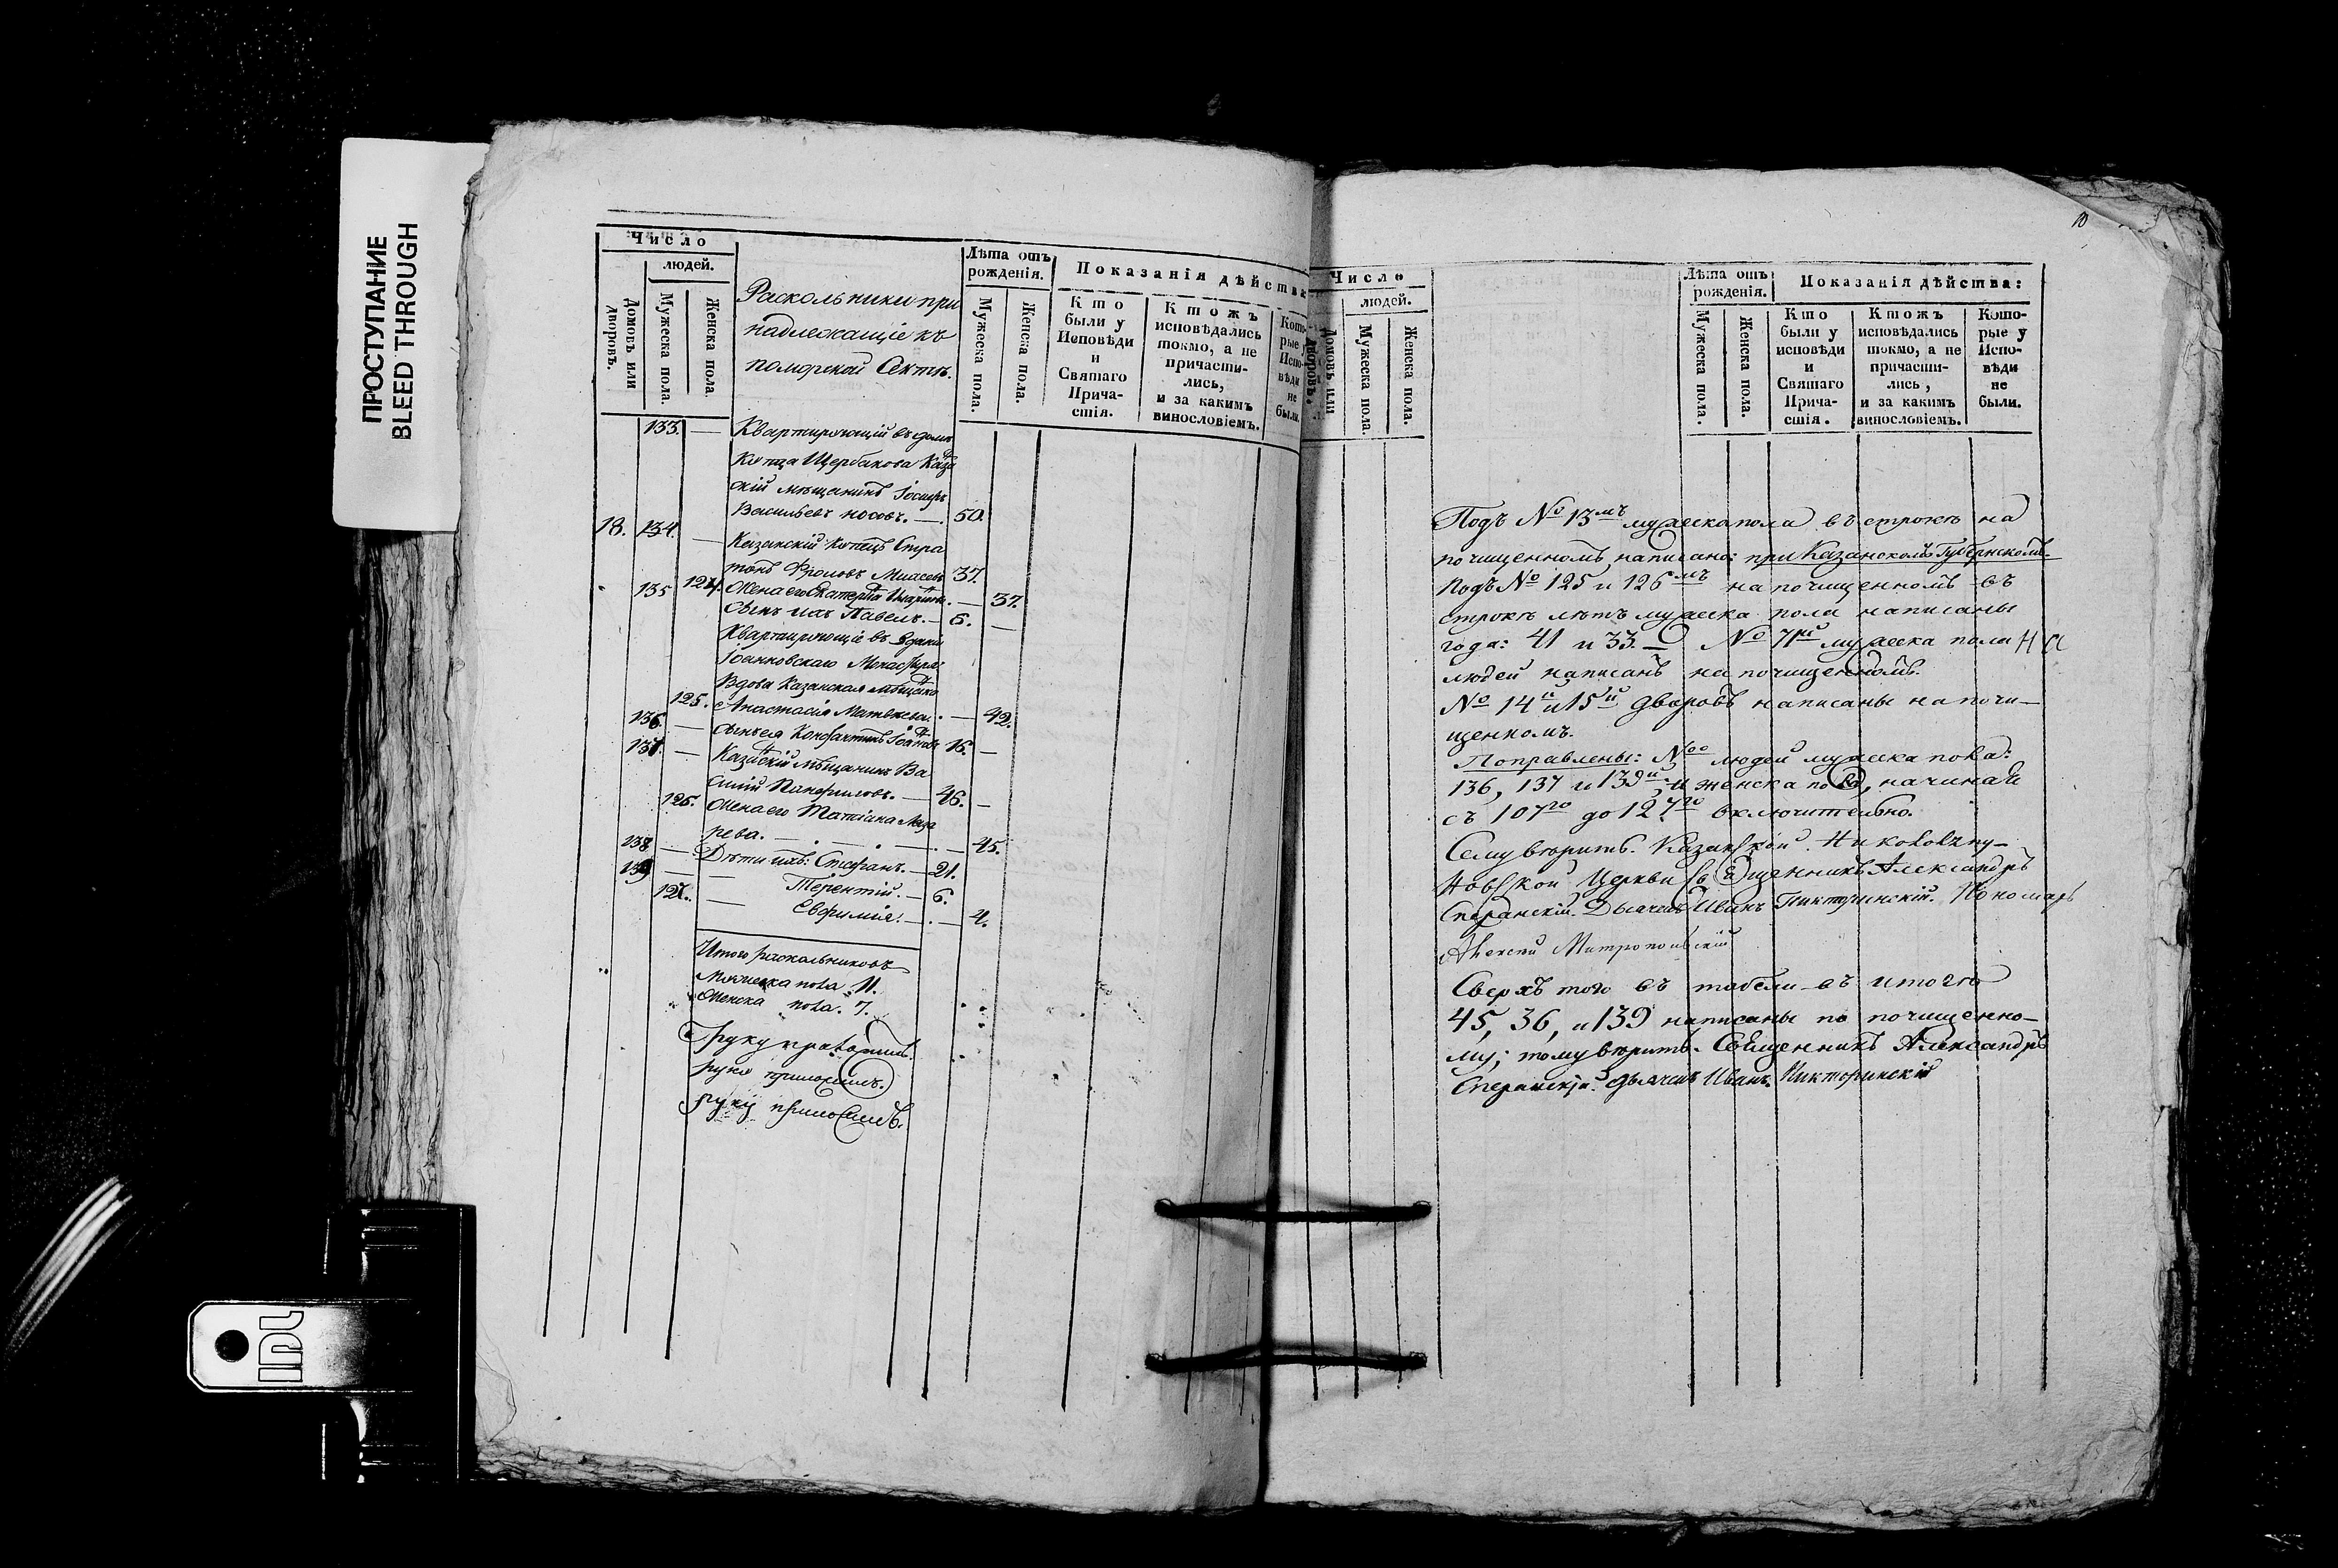 ПРОСТУПАНИЕ
BLEED THROUGH
Число
людей.
Домовъ или дворовъ.
Мужеска пола.
Женска пола.
Раскольники при
надлежащіе къ
поморской Сектѣ.
Лѣта отъ
рожденія.
Мужеска пола.
Женска пола.
Показанія дѣйства
Кто
были у
Исповѣди
и
Святаго
Прича-
стія.
Ктожъ
исповѣдались
токмо, а не
причасти-
лись,
и за какимъ
винословіемъ.
Кото-
рые у
Испо-
вѣди
не
были.
133. — Квартирующій въ домѣ
Купца Щербакова Каза
скій мѣщанинъ Іосифъ
Васильевъ Носовъ. — 50.
18. 134. — Казанскій Купецъ
Фроловъ 37.
124. Жена его Екатерина — 37.
135 Сынъ ихъ Павелъ. — 6. —
Квартирующіе въ зданіи
Іоанновскаго Монастыря:
Вдова Казанская мѣщанка
125. Анастасія Матвѣева. — 42.
136. — Сынъ ея Константинъ Іоанновъ 16. —
137. — Казанскій мѣщанинъ Ва
силій Панфиловъ. — 46. —
126. Жена его Татіана Лаза
рева. — 45.
138 — Дѣти ихъ: Стефанъ. — 21.
139 — Терентій. — 6.
127. — Евфимія. — 4.
Итого раскольниковъ
Мужеска пола 11.
Женска пола. 7.
руку приложилъ.
руку приложилъ.
руку приложилъ.
10
Число
людей.
Домовъ или дворовъ.
Мужеска пола.
Женска пола.
Лѣта отъ
рожденія.
Мужеска пола.
Женска пола.
Показанія дѣйства:
Кто
были у
исповѣди
и
Святаго
Прича-
стія.
Ктожъ
исповѣдались
токмо, а не
причасти-
лись,
и за какимъ
винословіемъ.
Кото-
рые у
Испо-
вѣди
не
были.
Подъ № 13мъ мужеска пола въ строкѣ на
почищенномъ написано: при Казанскомъ Губернскомъ.
Подъ № 125 и 126мъ на почищенномъ въ
строкѣ лѣтъ мужеска пола написаны
года: 41 и 33. — № 71й мужеска пола на
людей написанъ на почищенномъ.
№ 14й и 15й дворовъ написаны на почи-
щенномъ.
Поправлены: №оо людей мужеска пола:
136, 137 и 139й и женска пола, начиная
съ 107го до 127го включительно.
Сему вѣрить. Казанской Николо
церкви Священникъ Александръ
Сперанскій. Дьячекъ Иванъ Пикторинскій. Пономарь
Алексѣй Митропольскій
Сверхъ того въ табели въ итогѣ
45, 36, и 139 написаны по почищенно-
му; тому вѣрить. Священникъ Александръ
Сперанскій. Дьячекъ Иванъ Пикторинскій